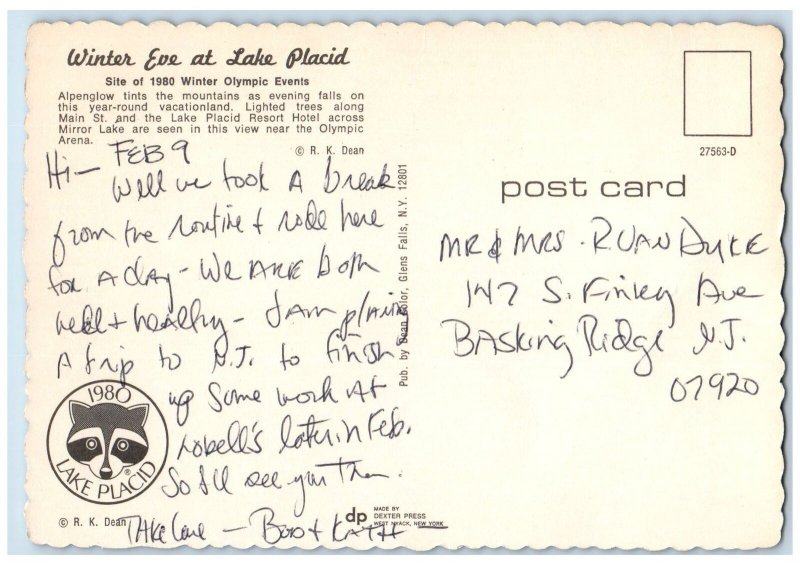 Winter Eve at Lake Placid
Site of 1980 Winter Olympic Events
Alpenglow tints the mountains as evening falls on
this year-round vacationland. Lighted trees along
Main St. and the Lake Placid Resort Hotel across
Mirror Lake are seen in this view near the Olympic
Arena.
© R. K. Dean
Hi - FEB 9
Well we took A break
from the routine + rode here
for A day - We ARE both
well + healthy - I am planing
A trip to N.J. to finish
up some work At
Lobell's later in Feb.
So I'll see you Then.
TAke Care - Bob + KATH
1980
LAKE PLACID
®
© R. K. Dean
Pub. by Dean Color, Glens Falls, N.Y. 12801
dp
MADE BY
DEXTER PRESS
WEST NYACK, NEW YORK
27563-D
post card
MR & MRS. R. VAN DyKE
147 S. Finley Ave
BASking Ridge N.J.
07920